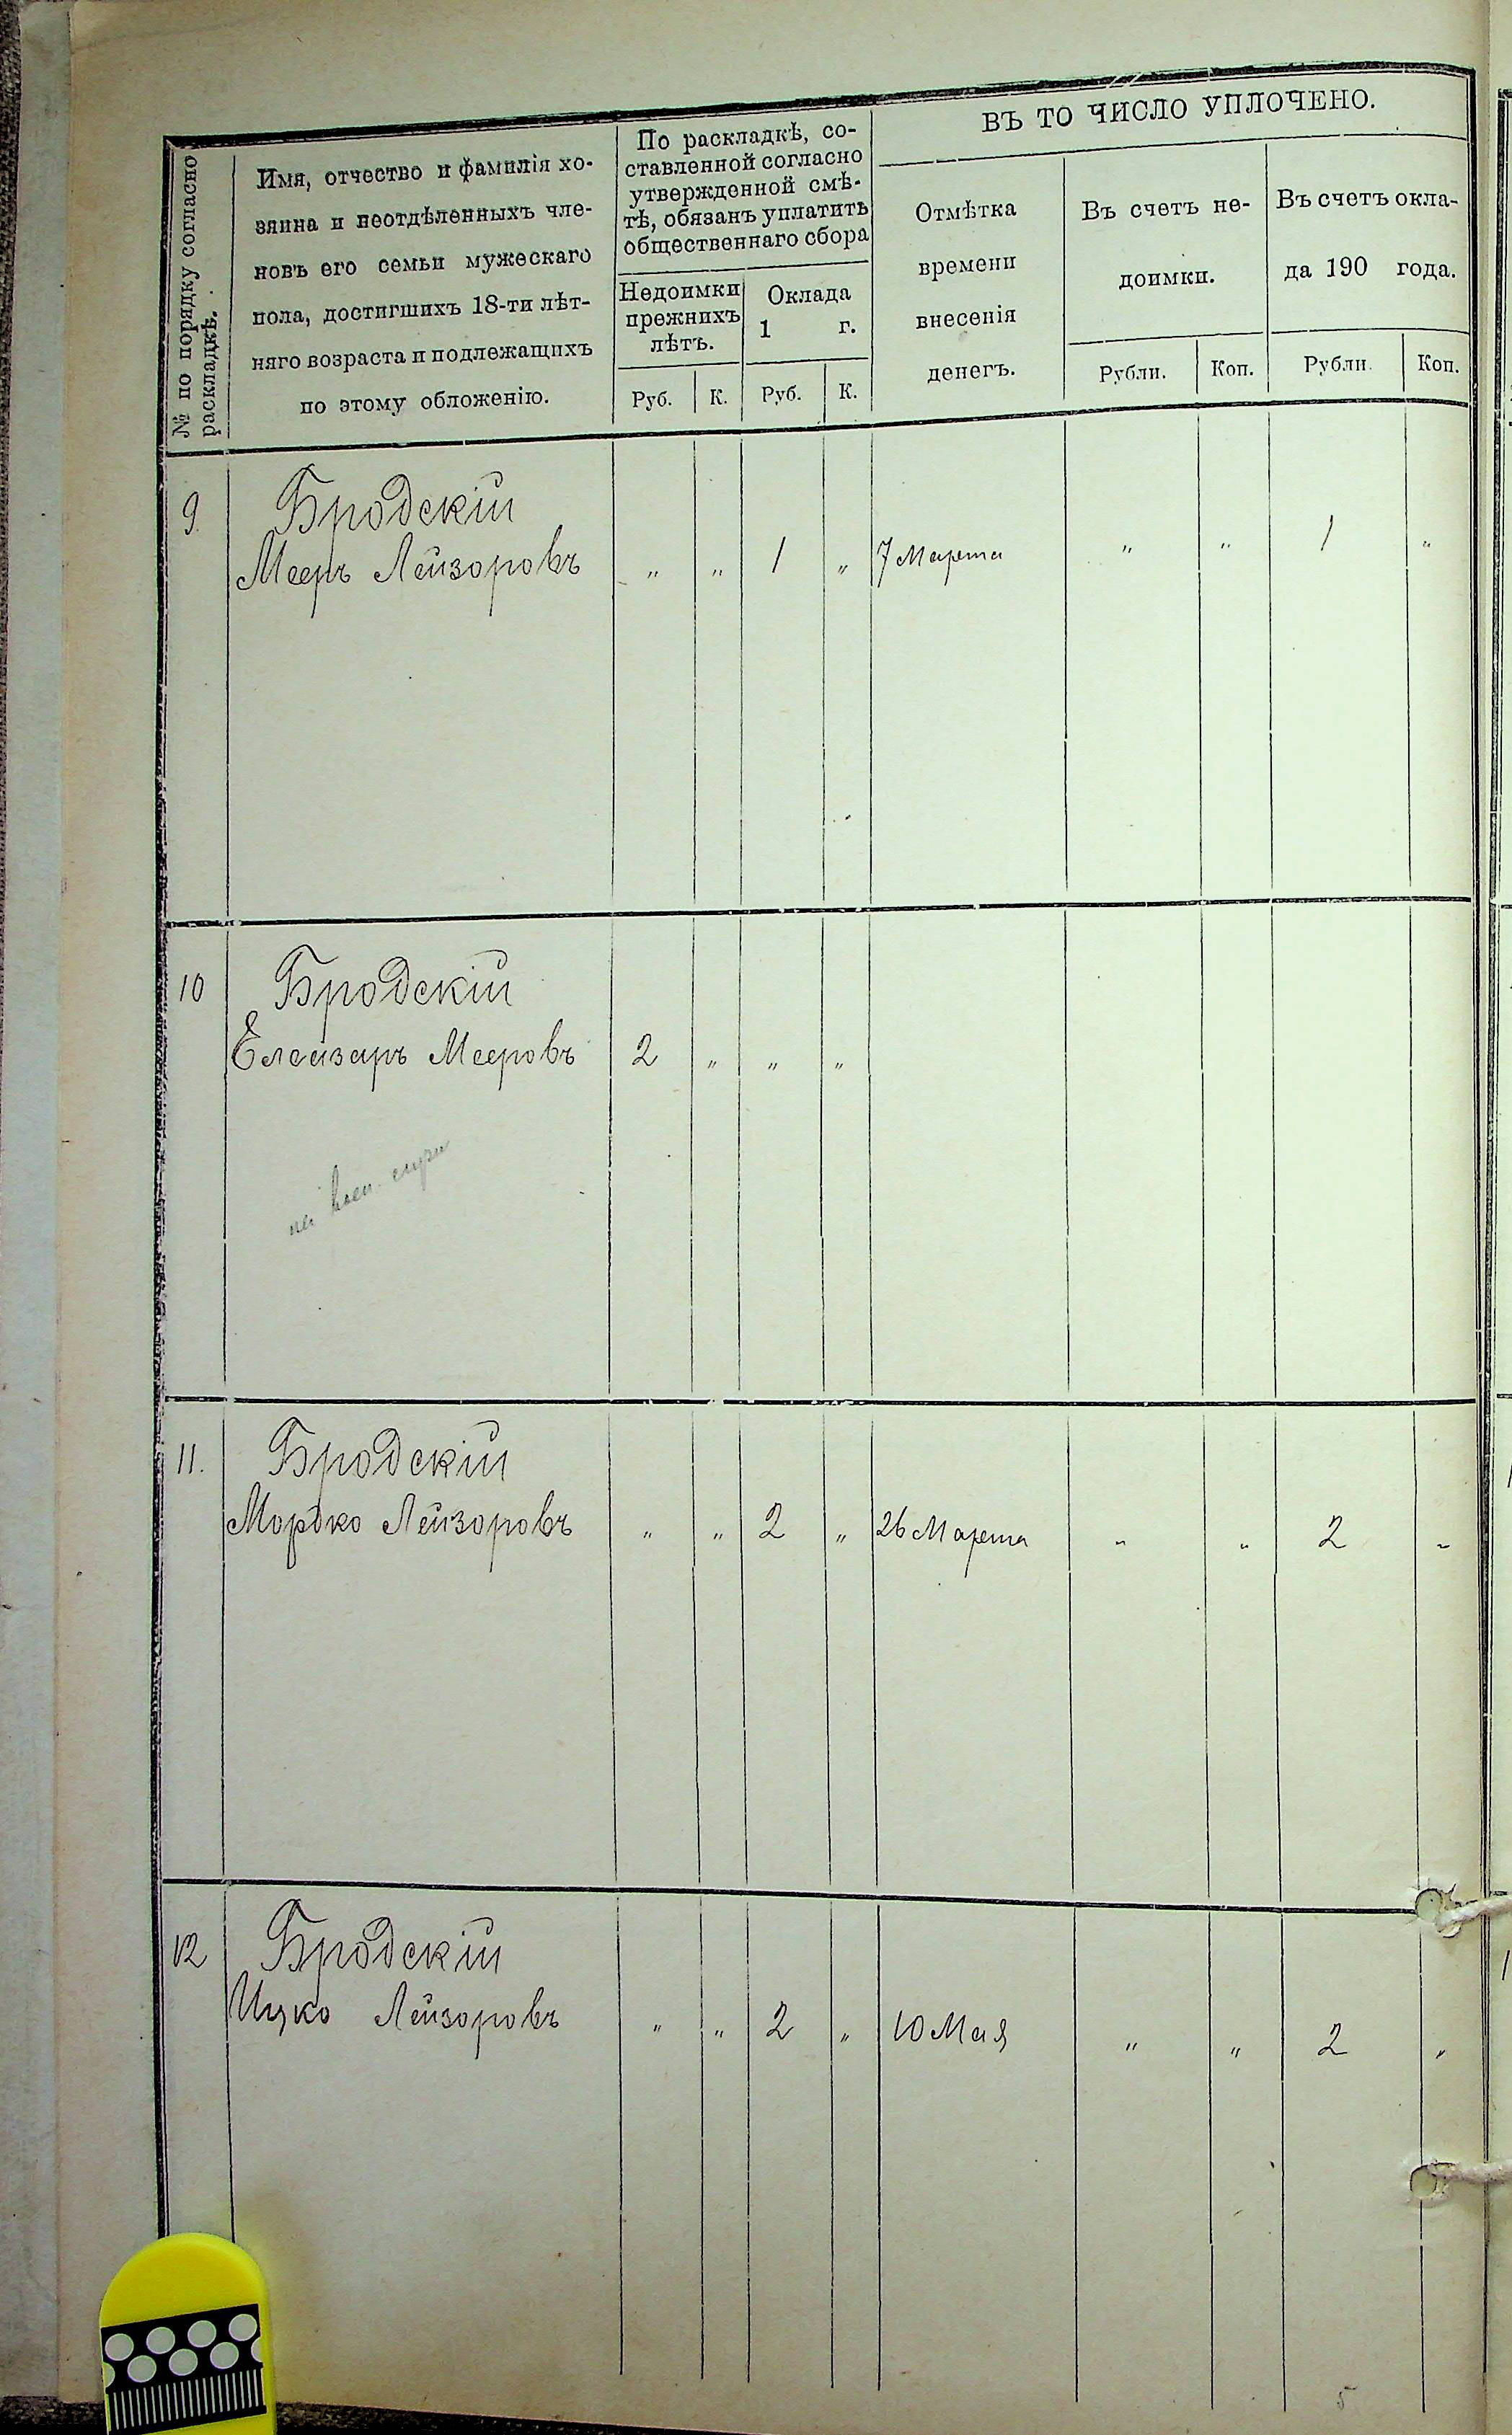 № по порядку согласно
раскладкѣ.
Имя, отчество и фамилія хо-
зяина и неотдѣленныхъ чле-
новъ его семьи мужескаго
пола, достигшихъ 18-ти лѣт-
няго возраста и подлежащихъ
по этому обложенію.
По раскладкѣ, со-
ставленной согласно
утвержденной смѣ-
тѣ, обязанъ уплатить
общественнаго сбора
Недоимки
прежнихъ
лѣтъ.
Руб. К.
Оклада
1 г.
Руб. К.
ВЪ ТО ЧИСЛО УПЛОЧЕНО.
Отмѣтка
времени
внесенія
денегъ.
Въ счетъ не-
доимки.
Рубли. Коп.
Въ счетъ окла-
да 190 года.
Рубли. Коп.
9 Бродскій
Мееръ Лейзоровъ „ „ 1 „ 7 Марта „ „ 1 „
10 Бродскій
Елеизаръ Мееровъ 2 „ „ „
на воен. служ
11. Бродскій
Мордко Лейзоровъ „ „ 2 „ 26 Марта „ „ 2 „
12 Бродскій
Ицко Лейзоровъ „ „ 2 „ 10 Мая „ „ 2 „
5